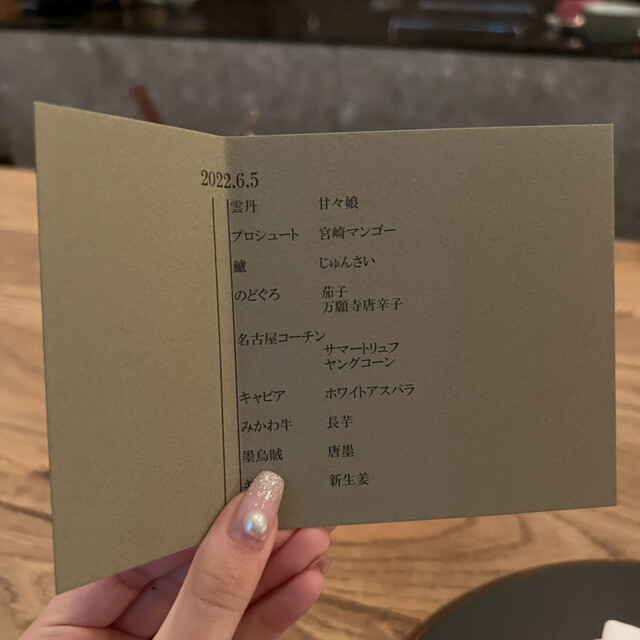 2022.6.5
雲丹 甘々娘
プロシュート 宮崎マンゴー
鱸 じゅんさい
のどぐろ 茄子
万願寺唐辛子
名古屋コーチン
サマートリュフ
ヤングコーン
キャビア ホワイトアスパラ
みかわ牛 長芋
墨烏賊 唐墨
新生姜